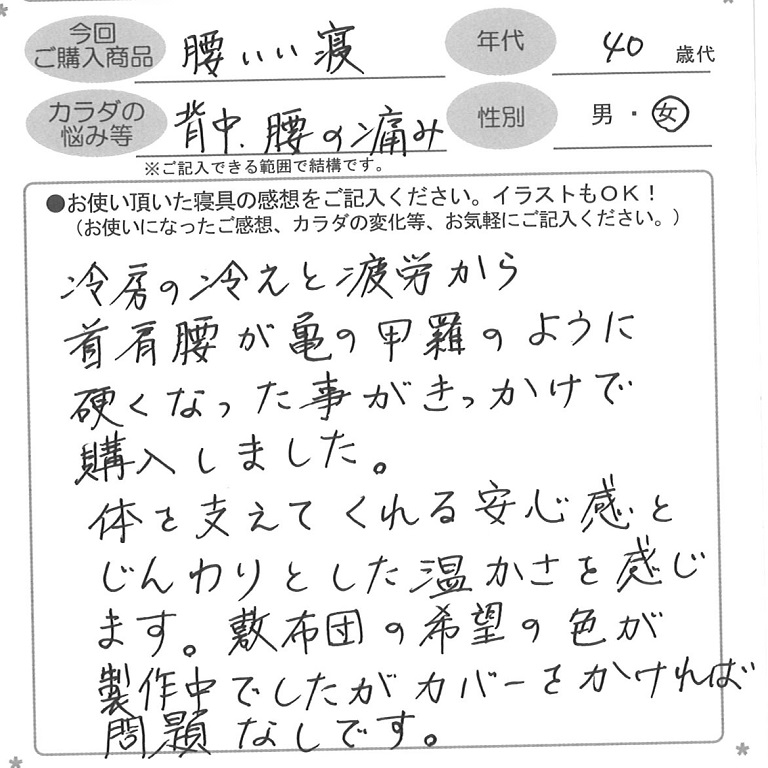 今回
ご購入商品
腰いい寝
年代
40
歳代
カラダの
悩み等
背中、腰の痛み
性別
男・女
※ご記入できる範囲で結構です。
●お使い頂いた寝具の感想をご記入ください。イラストもOK!
(お使いになったご感想、カラダの変化等、お気軽にご記入ください。)
冷房の冷えと疲労から
首肩腰が亀の甲羅のように
硬くなった事がきっかけで
購入しました。
体を支えてくれる安心感と
じんわりとした温かさを感じ
ます。敷布団の希望の色が
製作中でしたがカバーをかければ
問題なしです。